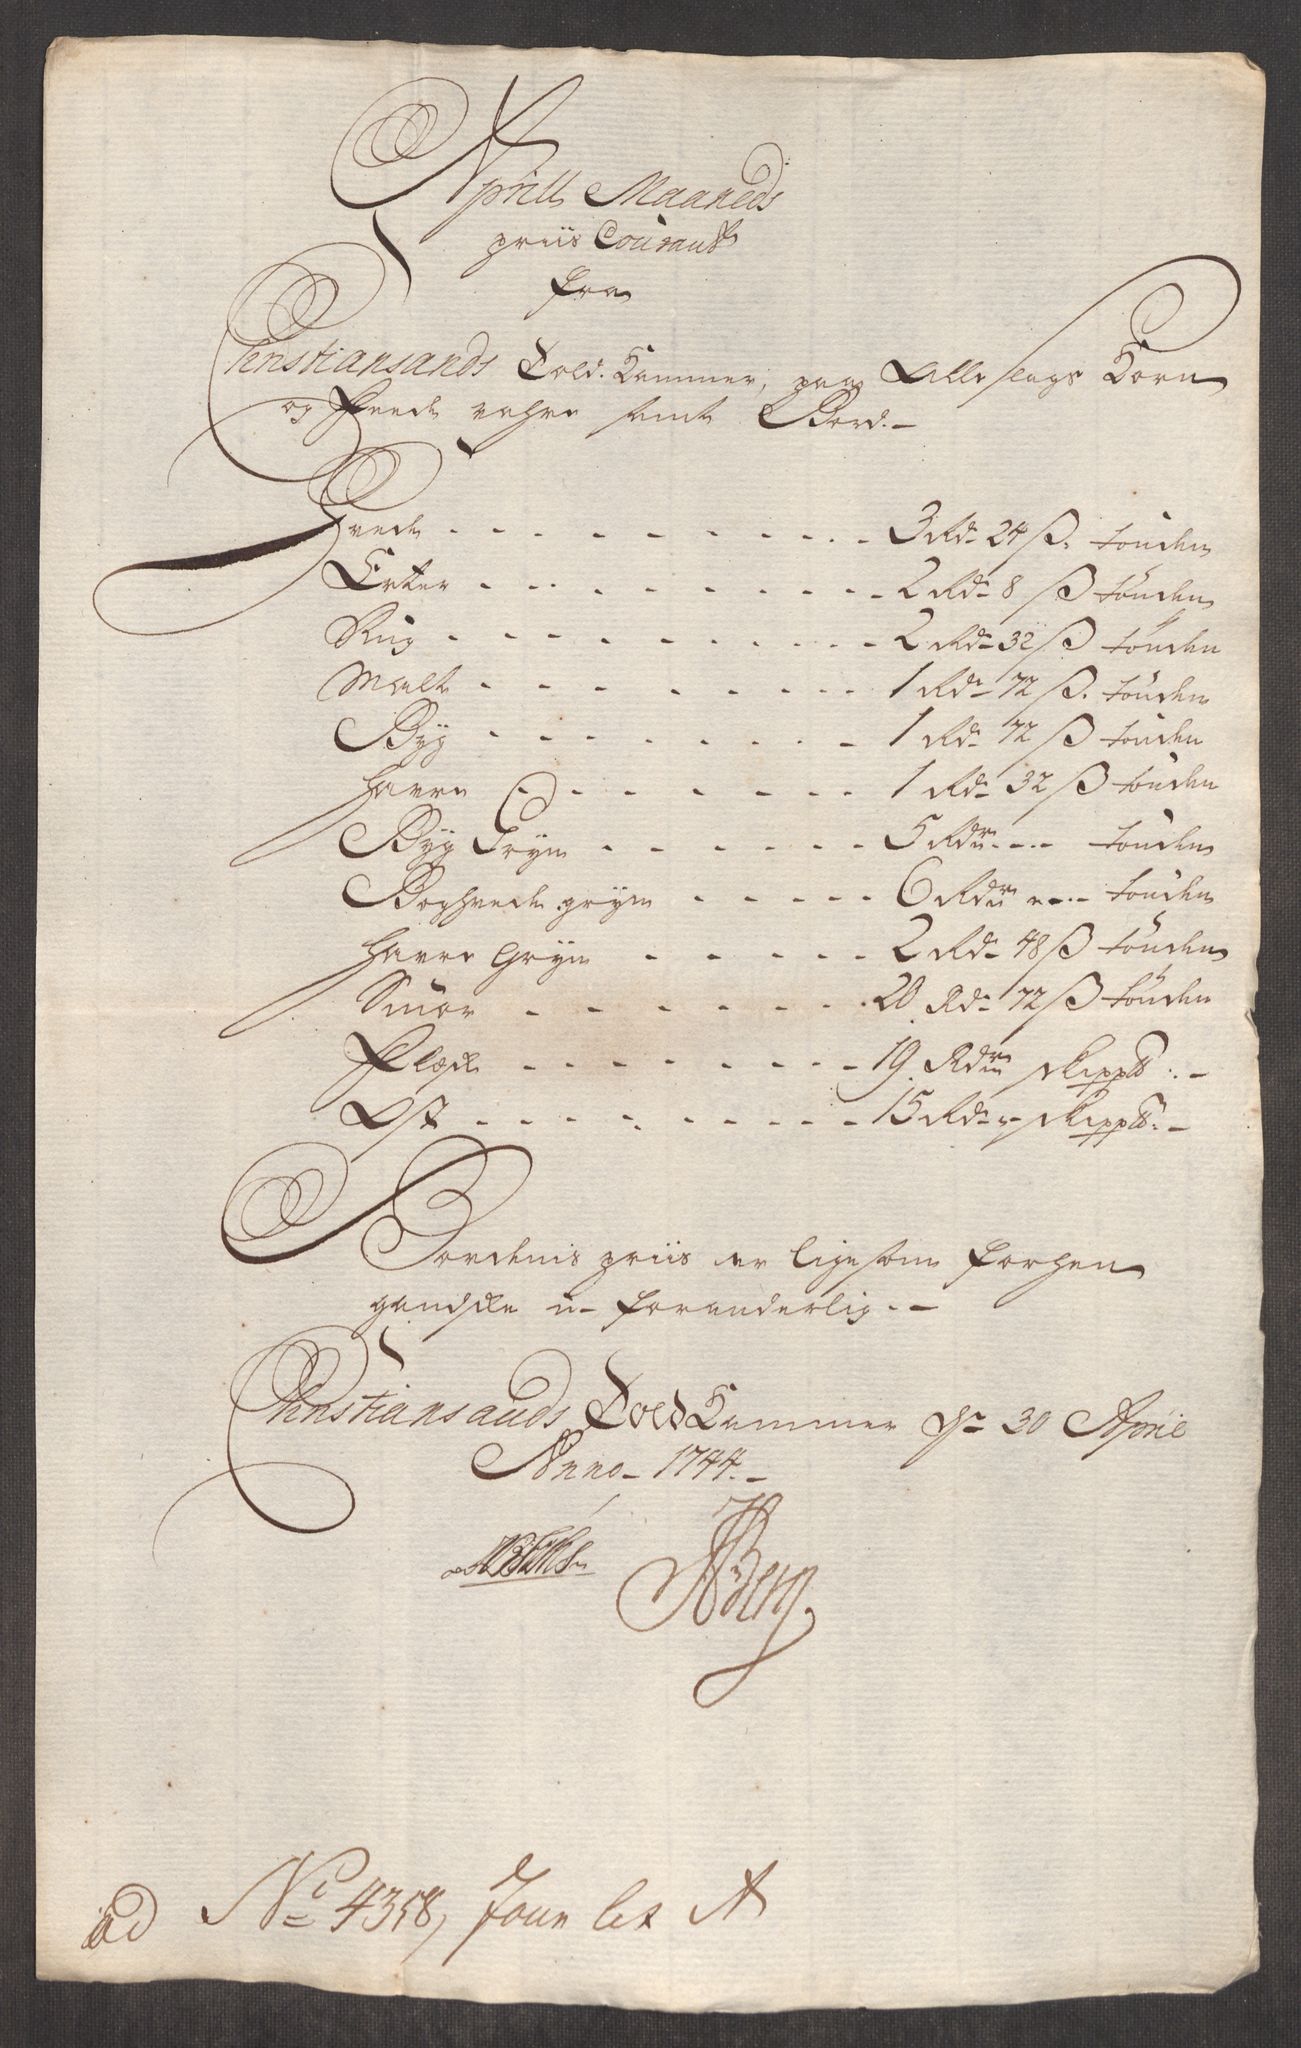 Aprill Maaneds
priis Courant
fra
Christiansands Told-Kammer, paa Alle slags Korn
og Feede vahre samt Bord.-
Hvede - - - - - - - - - 3 Rd- 24 ß. tönden
Erter - - - - - - - - - 2 Rd- 8 ß tönden
Rug - - - - - - - - - 2 Rd- 32 ß tönden
Malt - - - - - - - - - 1 Rd- 72 ß. tönden
Byg - - - - - - - - - 1 Rd- 72 ß tönden
Havre - - - - - - - - 1 Rd- 32 ß tönden
Byg Gryn - - - - - - 5 Rdr --- tönden
Boghvede gryn - - - - - 6 Rdr --- tönden
Havre Gryn - - - - - 2 Rd- 48 ß tönden
Smör - - - - - - - 20 Rd- 72 ß tönden
Flæsk - - - - - - - 19. Rdr skipp℔:-
Ost - - - - - - - - 15 Rd- skipp℔:-
Bordenis priis er ligesom forhen
gandske u-foranderlig.-
Christiansands Told Kammer dn 30 April
Anno- 1744.-
Berg
ad No 4358, Jour let A